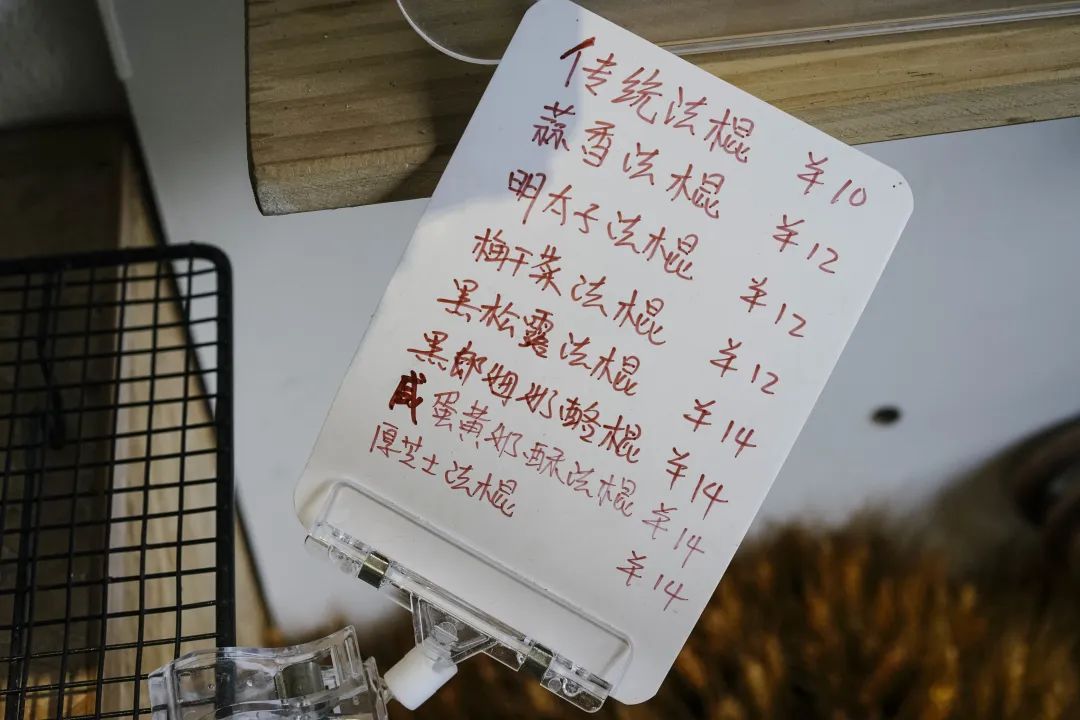 传统法棍 ¥10
蒜香法棍 ¥12
明太子法棍 ¥12
梅干菜法棍 ¥12
黑松露法棍 ¥14
黑郎姆奶酪棍 ¥14
咸蛋黄奶酥法棍 ¥14
厚芝士法棍 ¥14